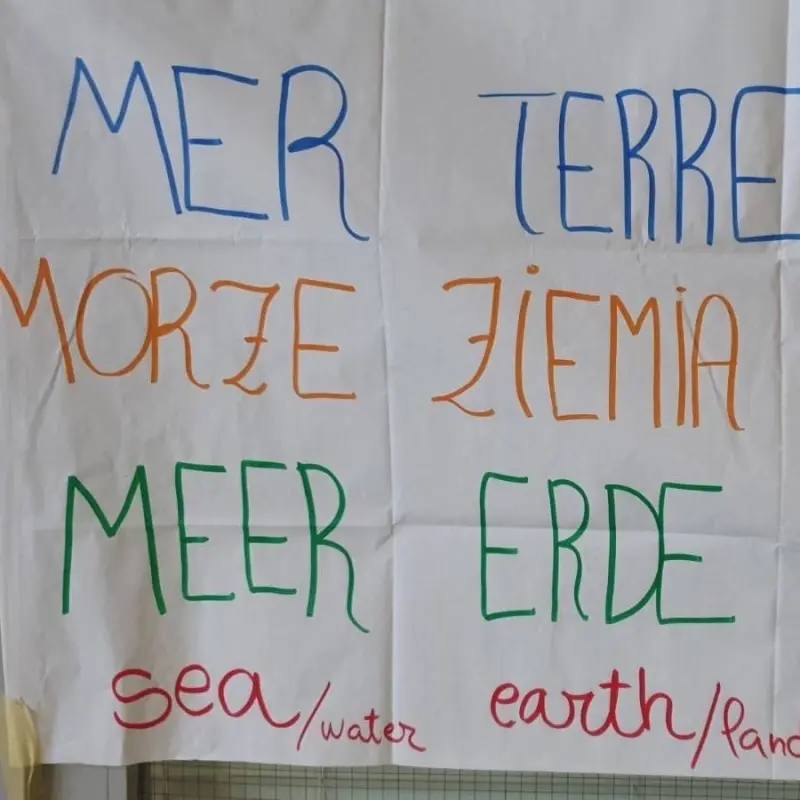 MER TERRE
MORZE ZIEMIA
MEER ERDE
sea/water earth/land